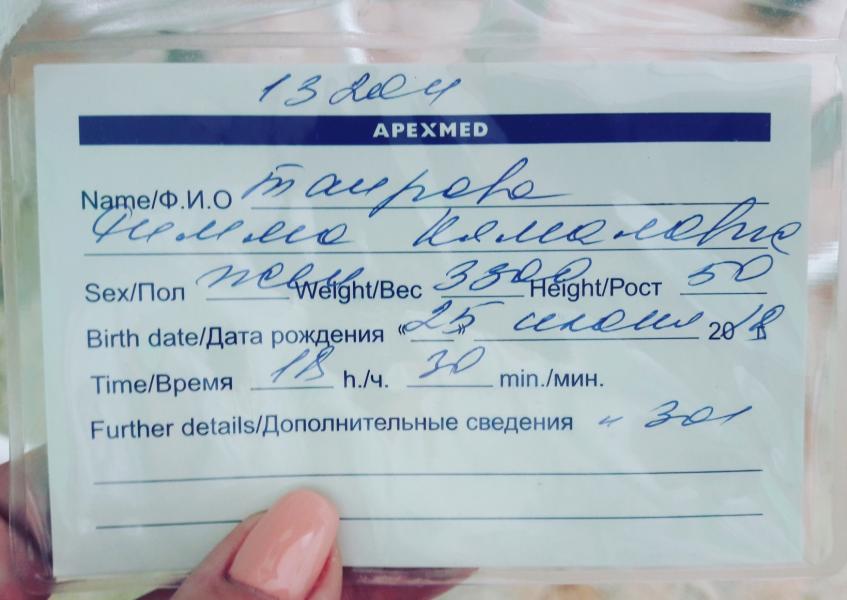 13
APEXMED
Name/Ф.И.О Таирова
Кямаловна
Sex/Пол жен Weight/Вес 3300 Height/Рост 50
Birth date/Дата рождения «25» июня 2018
Time/Время 18 h./ч. 30 min./мин.
Further details/Дополнительные сведения